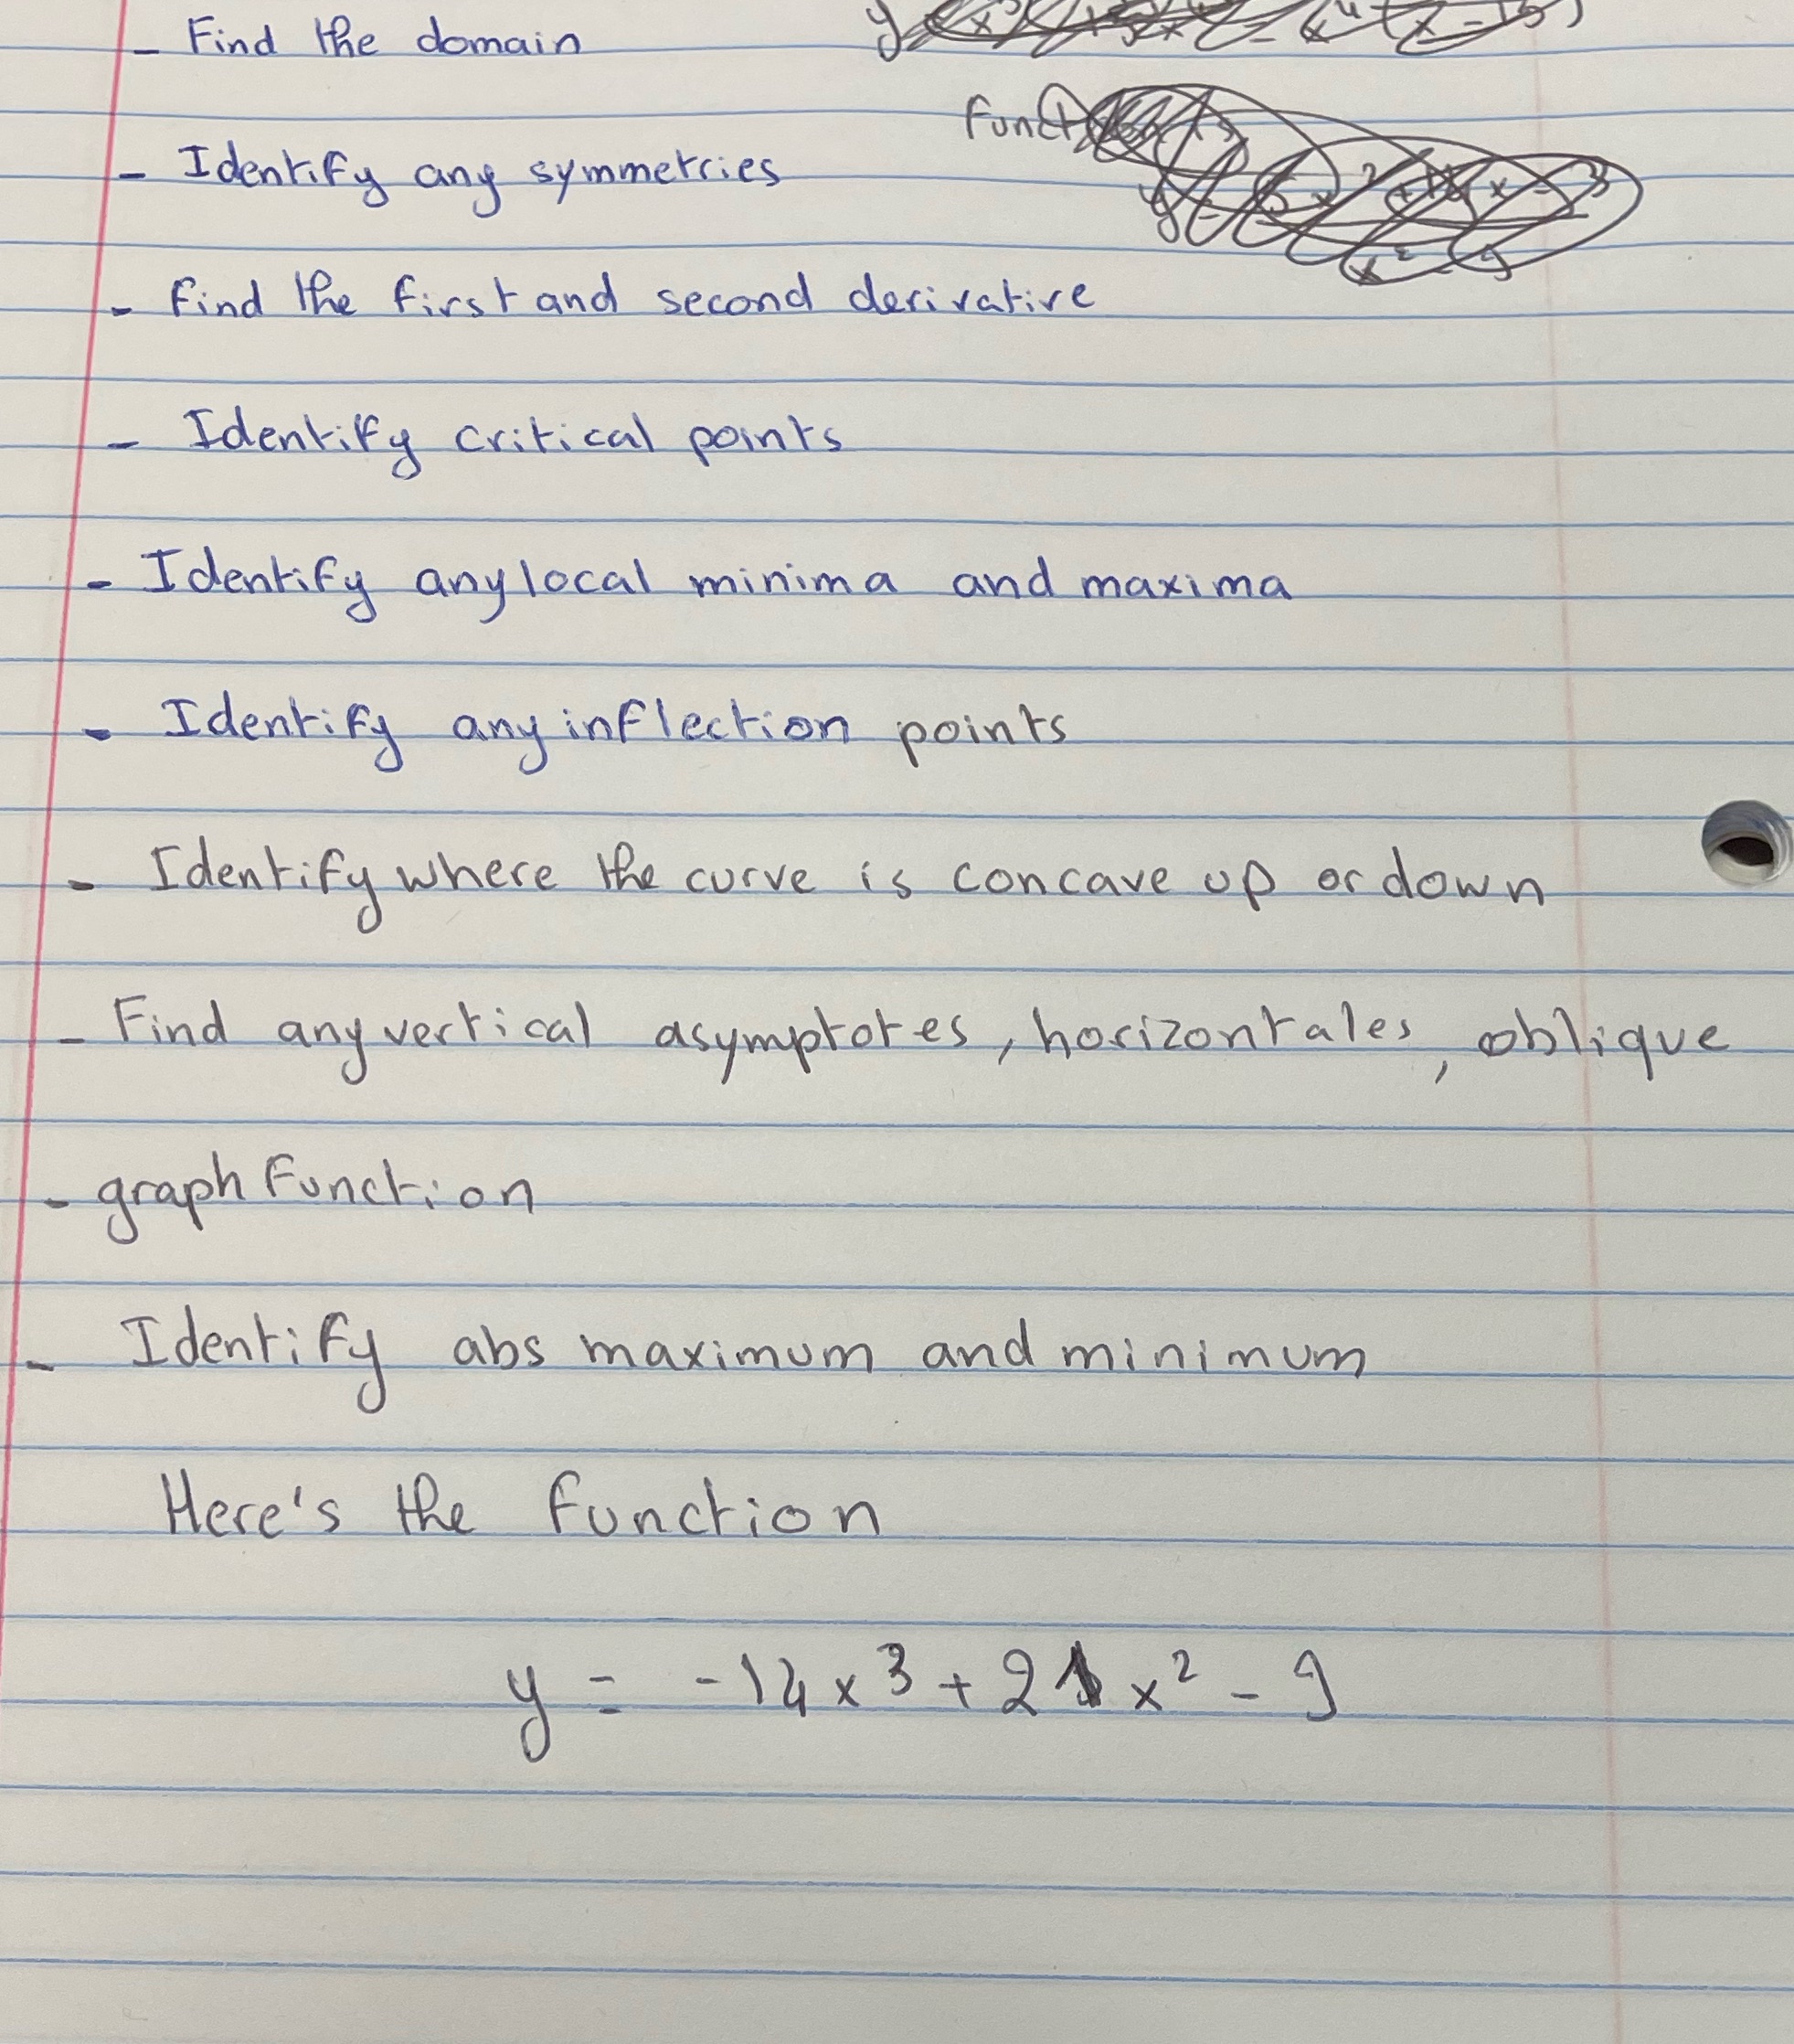 - Find the domain
y
Funct
- Identify any symmetries
- Find the first and second derivative
- Identify critical points
- Identify any local minima and maxima
- Identify any inflection points
- Identify where the curve is concave up or down
- Find any vertical asymptotes, horizontales, oblique
- graph function
- Identify abs maximum and minimum
Here's the function
y = -14x³ + 21x² - 9